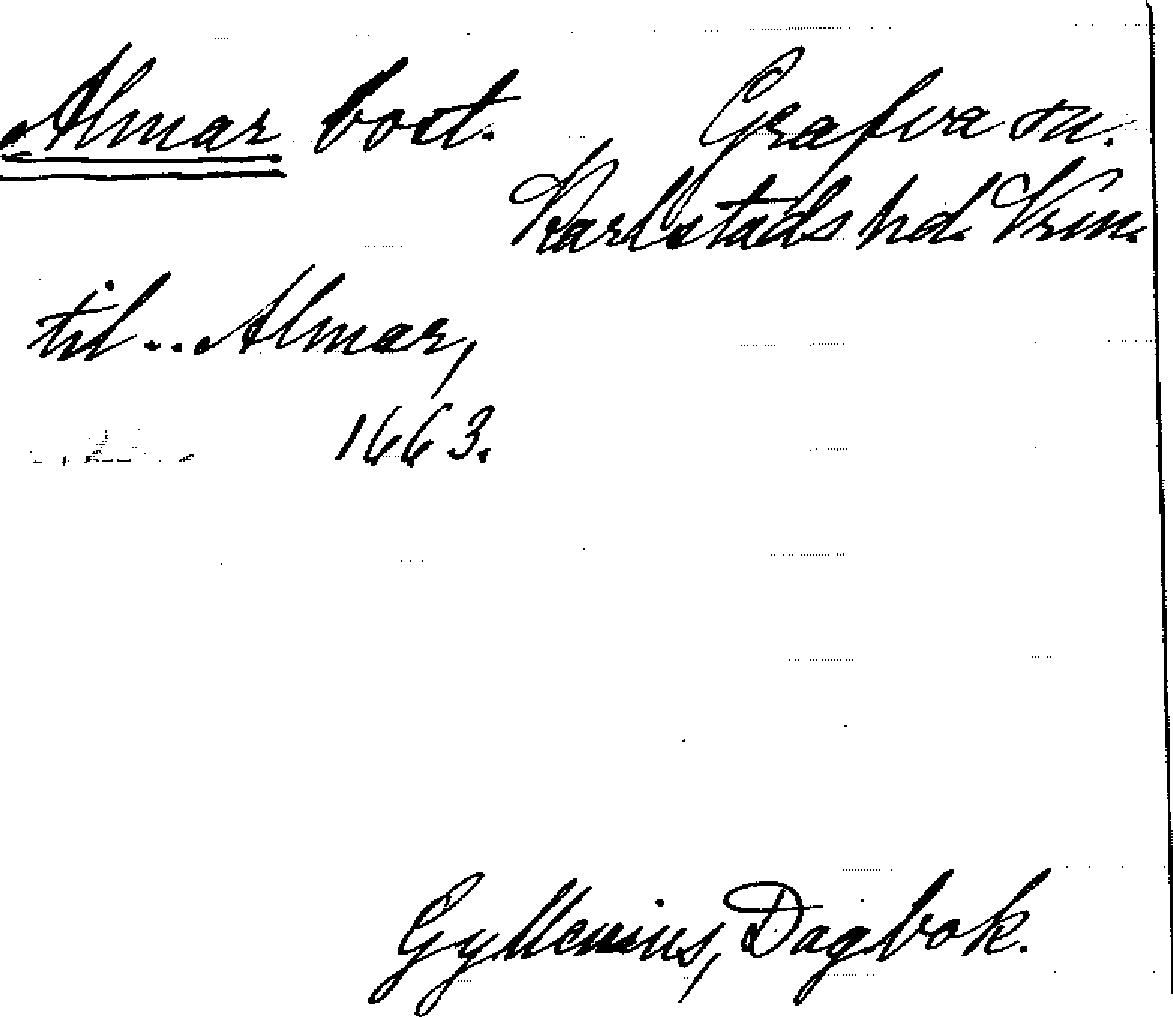 Almar bost. Grafva sn.
Karlstads hd. Vrm.
til .. Almar,
1663.
Gyllenius, Dagbok.